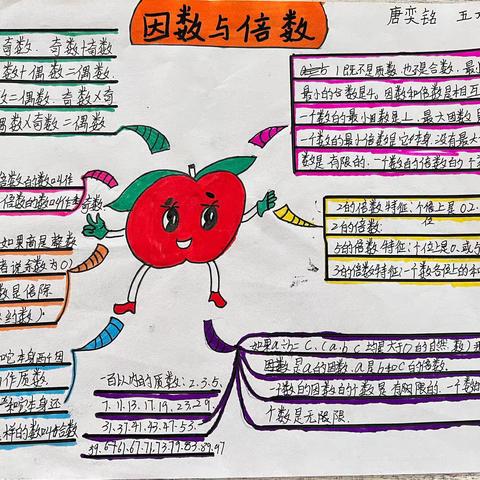 因数与倍数
唐奕铭 五
奇数. 奇数+奇数
数+偶数=偶数
数=偶数. 奇数×奇
偶数×奇数=偶数
1既不是质数, 也不是合数. 最小
最小的合数是4. 因数和倍数是相互
一个数的最小因数是1. 最大因数
一个数的最小倍数是它本身. 没有最大
数是有限的. 一个数的倍数的个
倍数的数叫作
倍数的数叫作奇数
如果商是整数
者说余数为0)
数是倍除
约数)
2的倍数特征:个位上是0.2.
2的倍数.
位
5的倍数特征:个位上是0.或
3的倍数特征:一个数各位上的和
它本身两个因
作质数.
和它本身还
样的数叫合数
一百以内的质数:2.3.5.
7.11.13.17.19.23.29.
31.37.41.43.47.53.
59.61.67.71.73.79.83.89.97
如果a÷b=c.(a.b.c均是大于0的自然数)
因数是a的因数. a是b和c的倍数.
一个数的因数的个数是有限的. 一个数
个数是无限限.